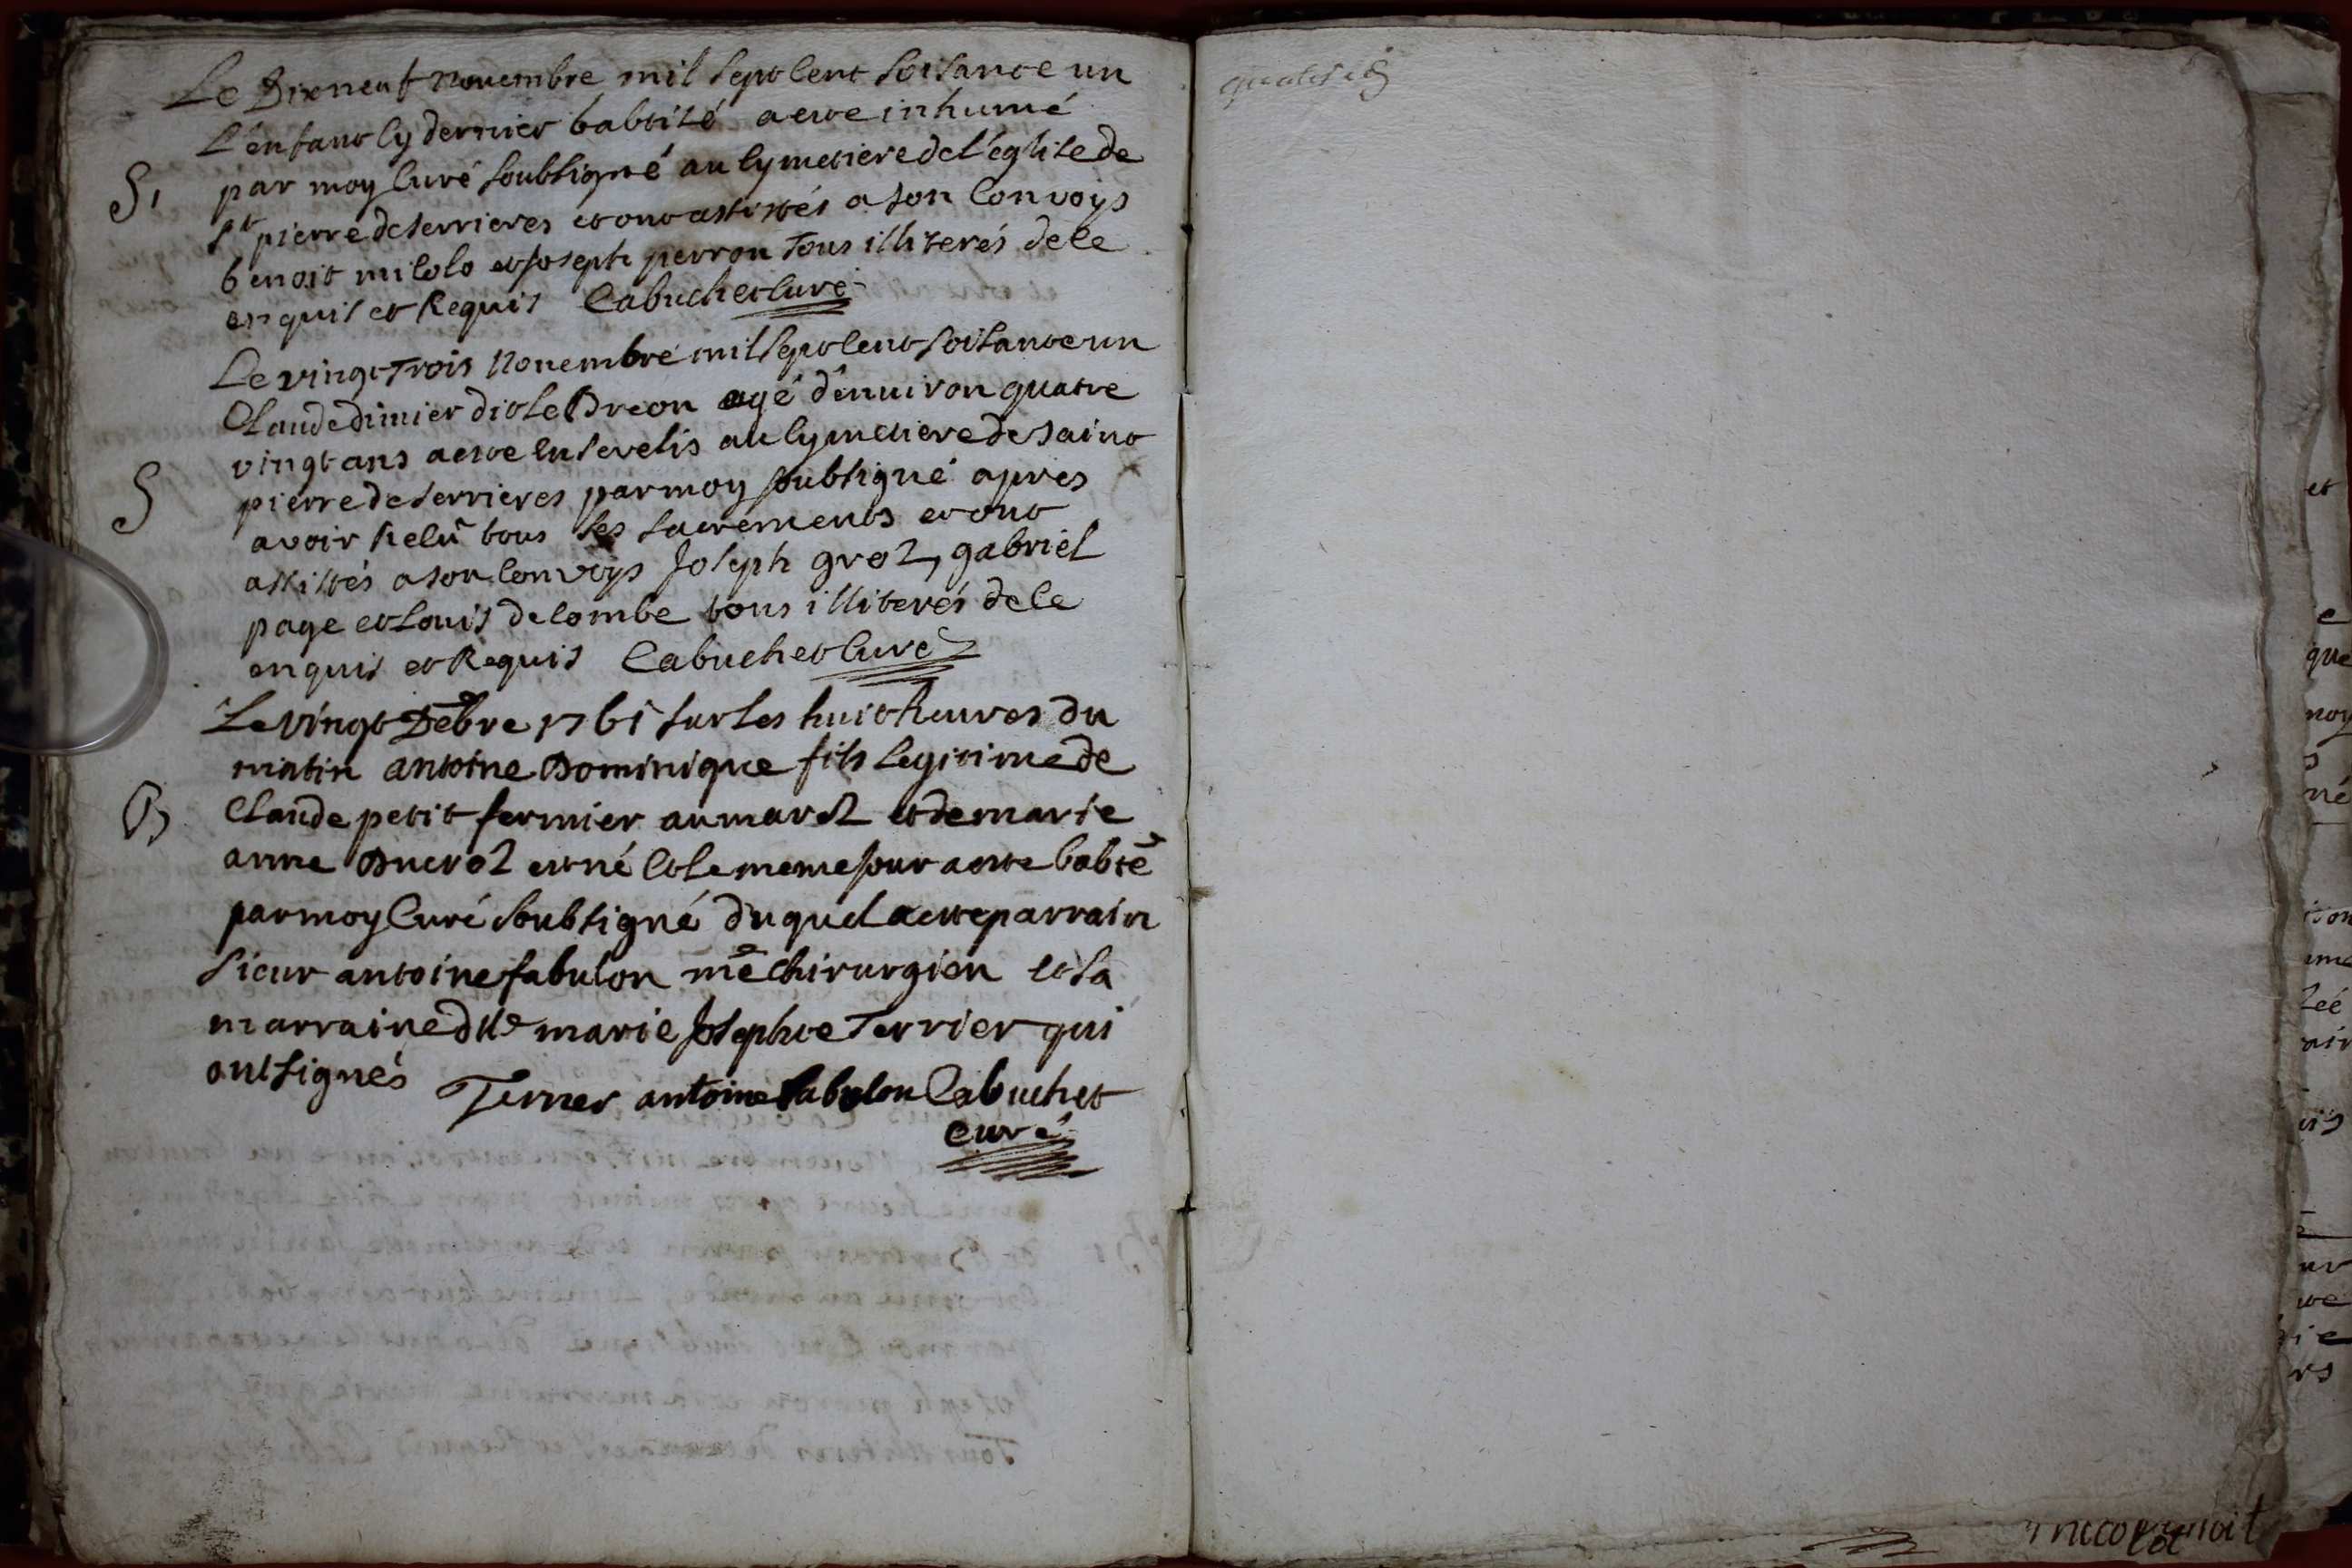 Le Dixneuf novembre mil sept cent soisante un
L'enfant cy dernier babtisé a ete inhumé
S. par moy curé soubsigné au cymetiere de l'églite de
st pierre de serrieres et ont assistés a son convoys
benoit milolo et joseph perron tous illiterés de ce
enquis et Requis Cabuchet curé
Le vingt trois Novembre mil sept cent soisante un
Claude dimier dit le Breon agé d'enuiron quatre
vingt ans a ete ensevelis au cymetiere de saint
S pierre de serrieres par moy soubsigné apres
avoir Recû tous ses sacrements et ont
assistés a son convoys Joseph groz, gabriel
page et Louis delombe tous illiterés de ce
enquis et Requis Cabuchet curé
Le vingt Debre 1761 sur les huit heures du
matin antoine Dominique fils legitime de
B Claude petit fermier au marez et de marie
anne Ducroz est né et le meme jour a ete babté
par moy Curé soubsigné duquel a ete parrain
sieur antoine fabulon me chirurgien et la
marraine dlle marie Josephte Terrier qui
ont signés
Terrier antoine fabulon Cabuchet
curé
et
e
que
moy
né
ur
ie
rs